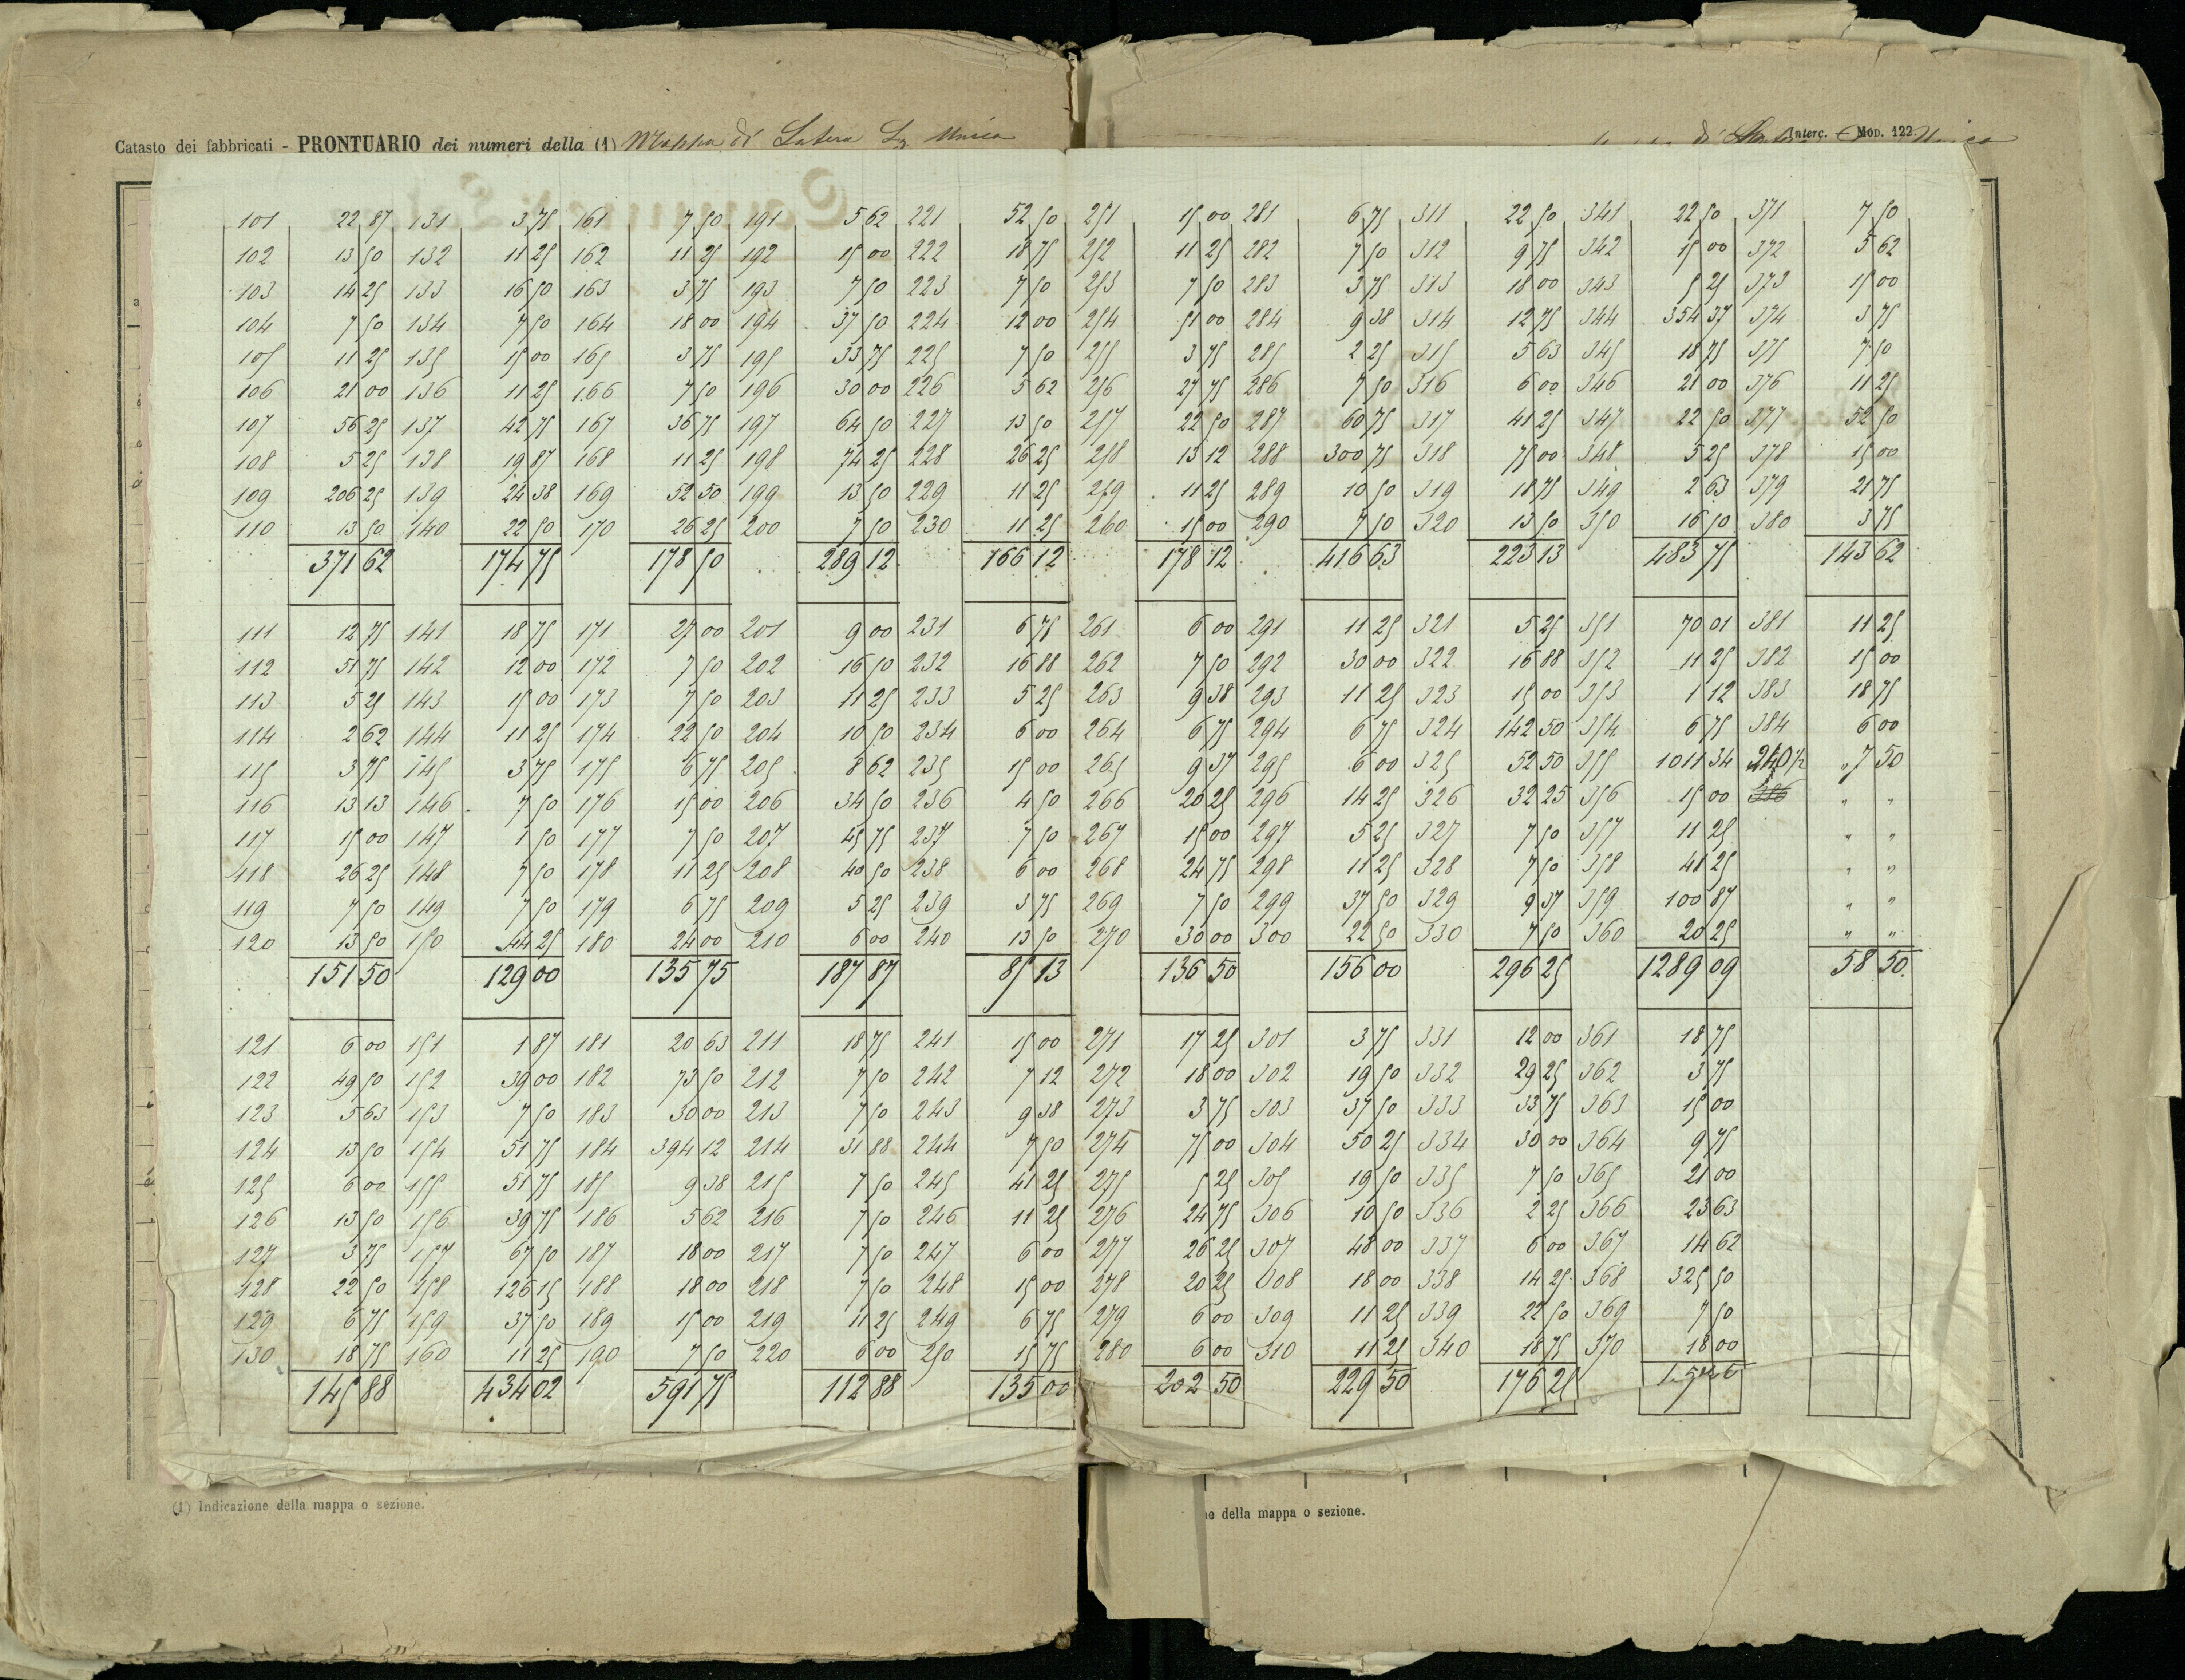 Catasto dei fabbricati - PRONTUARIO dei numeri della (1) Mappa di Latera Unica Interc. Mod. 122. Unica
101 22 87 131 3 75 161 7 50 191 5 62 221 52 50 251 15 00 281 6 75 311 22 50 341 22 50 371 7 50
102 13 50 132 11 25 162 11 25 192 15 00 222 18 75 252 11 25 282 7 50 312 9 75 342 15 00 372 5 62
103 14 25 133 16 50 163 3 75 193 7 50 223 7 50 253 7 50 283 3 75 313 18 00 343 5 25 373 15 00
104 7 50 134 7 50 164 18 00 194 37 50 224 12 00 254 51 00 284 9 38 314 12 75 344 354 37 374 3 75
105 11 25 135 15 00 165 3 75 195 33 75 225 7 50 255 3 75 285 2 25 315 5 63 345 18 75 375 7 50
106 21 00 136 11 25 166 7 50 196 30 00 226 5 62 256 27 75 286 7 50 316 6 00 346 21 00 376 11 25
107 56 25 137 42 75 167 36 75 197 64 50 227 13 50 257 22 50 287 60 75 317 41 25 347 22 50 377 52 50
108 5 25 138 19 87 168 11 25 198 74 25 228 26 25 258 13 12 288 300 75 318 75 00 348 5 25 378 15 00
109 206 25 139 24 38 169 52 50 199 13 50 229 11 25 259 11 25 289 10 50 319 18 75 349 2 63 379 21 75
110 13 50 140 22 50 170 26 25 200 7 50 230 11 25 260 15 00 290 7 50 320 13 50 350 16 50 380 3 75
371 62 174 75 178 50 289 12 166 12 178 12 416 63 223 13 483 75 143 62
111 12 75 141 18 75 171 27 00 201 9 00 231 6 75 261 6 00 291 11 25 321 5 25 351 70 01 381 11 25
112 51 75 142 12 00 172 7 50 202 16 50 232 16 88 262 7 50 292 30 00 322 16 88 352 11 25 382 15 00
113 5 25 143 15 00 173 7 50 203 11 25 233 5 25 263 9 38 293 11 25 323 15 00 353 1 12 383 18 75
114 2 62 144 11 25 174 22 50 204 10 50 234 6 00 264 6 75 294 6 75 324 142 50 354 6 75 384 6 00
115 3 75 145 3 75 175 6 75 205 8 62 235 15 00 265 9 37 295 6 00 325 52 50 355 1011 34 240 1/2 7 50
116 13 13 146 7 50 176 15 00 206 34 50 236 4 50 266 20 25 296 14 25 326 32 25 356 15 00 386 " "
117 15 00 147 1 50 177 7 50 207 45 75 237 7 50 267 15 00 297 5 25 327 7 50 357 11 25 " "
118 26 25 148 7 50 178 11 25 208 40 50 238 6 00 268 24 75 298 11 25 328 7 50 358 41 25 " "
119 7 50 149 7 50 179 6 75 209 5 25 239 3 75 269 7 50 299 37 50 329 9 37 359 100 87 " "
120 13 50 150 44 25 180 24 00 210 6 00 240 13 50 270 30 00 300 22 50 330 7 50 360 20 25 " "
151 50 129 00 135 75 187 87 85 13 136 50 156 00 296 25 1289 09 58 50
121 6 00 151 1 87 181 20 63 211 18 75 241 15 00 271 17 25 301 3 75 331 12 00 361 18 75
122 49 50 152 39 00 182 73 50 212 7 50 242 7 12 272 18 00 302 19 50 332 29 25 362 3 75
123 5 63 153 7 50 183 30 00 213 7 50 243 9 38 273 3 75 303 37 50 333 33 75 363 15 00
124 13 50 154 51 75 184 394 12 214 31 88 244 7 50 274 75 00 304 50 25 334 30 00 364 9 75
125 6 00 155 51 75 185 9 38 215 7 50 245 41 25 275 5 25 305 19 50 335 7 50 365 21 00
126 13 50 156 39 75 186 5 62 216 7 50 246 11 25 276 24 75 306 10 50 336 2 25 366 23 63
127 3 75 157 67 50 187 18 00 217 7 50 247 6 00 277 26 25 307 48 00 337 6 00 367 14 62
128 22 50 158 126 15 188 18 00 218 7 50 248 15 00 278 20 25 308 18 00 338 14 25 368 325 50
129 6 75 159 37 50 189 15 00 219 11 25 249 6 75 279 6 00 309 11 25 339 22 50 369 7 50
130 18 75 160 11 25 190 7 50 220 6 00 250 15 75 280 6 00 310 11 25 340 18 75 370 18 00
145 88 434 02 591 75 112 88 135 00 202 50 229 50 176 25
(1) Indicazione della mappa o sezione.
della mappa o sezione.